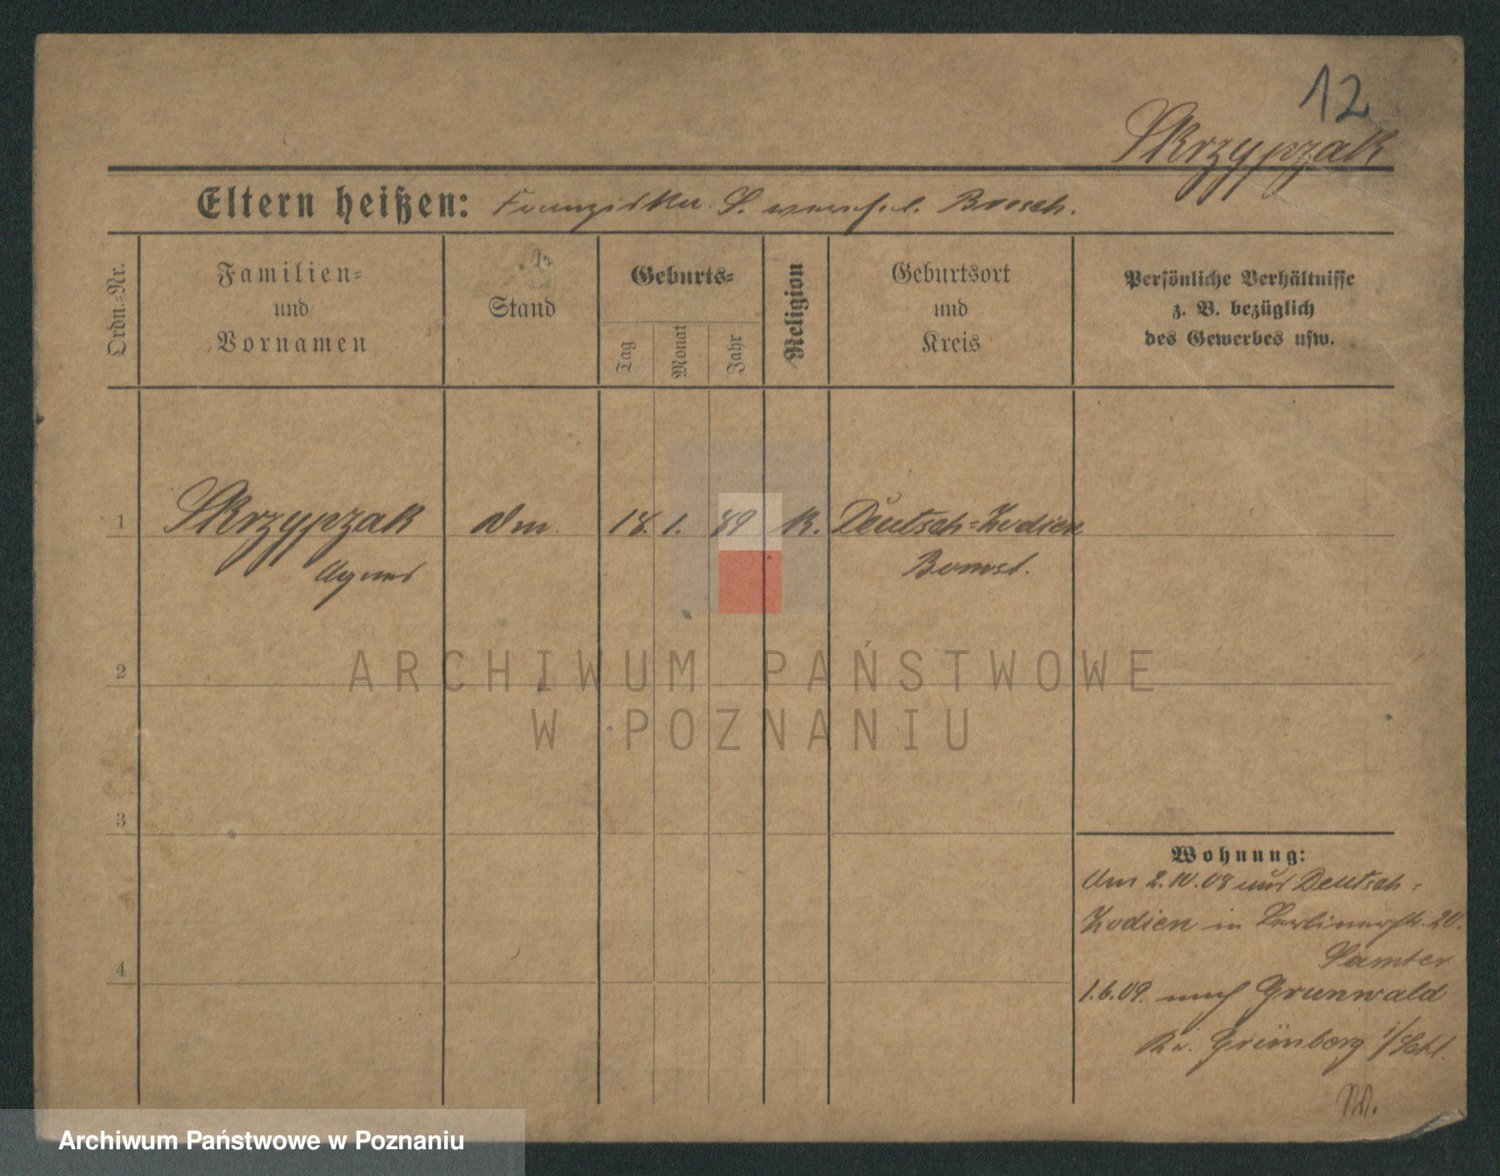 12
Skrzypzak
Eltern heißen: Franziska S. verehel. Brosch.
Ordn.-Nr.
Familien-
und
Vornamen
Stand
Geburts-
Tag
Monat
Jahr
Religion
Geburtsort
und
Kreis
Persönliche Verhältnisse
z. B. bezüglich
des Gewerbes usw.
1 Skrzypzak Dm. 18. 1. 89 K. Deutsch-Kodien
Agnes Bomst.
2
3
4
Wohnung:
Am 2.10.08 aus Deutsch-
Kodien in Berlinerstr. 20.
Samter
1.6.09. nach Grunwald
Kr. Grünberg i/Schl.
ARCHIWUM PAŃSTWOWE
W POZNANIU
Archiwum Państwowe w Poznaniu